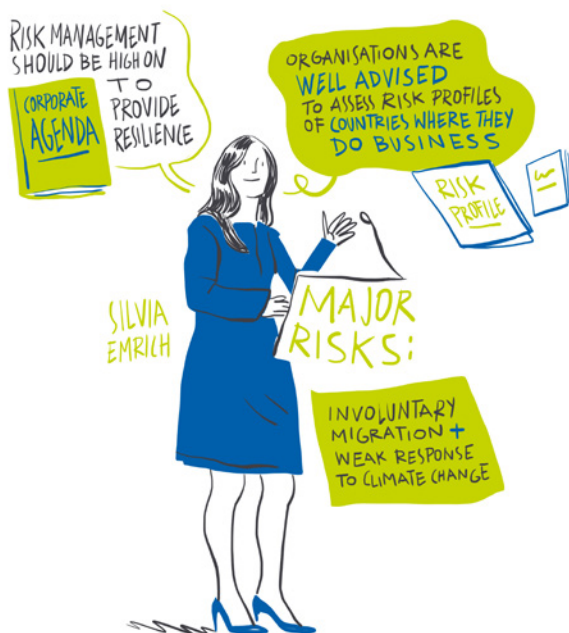 RISK MANAGEMENT
SHOULD BE HIGH ON
CORPORATE
AGENDA
TO
PROVIDE
RESILIENCE
ORGANISATIONS ARE
WELL ADVISED
TO ASSESS RISK PROFILES
OF COUNTRIES WHERE THEY
DO BUSINESS
RISK
PROFILE
SILVIA
EMRICH
MAJOR
RISKS:
INVOLUNTARY
MIGRATION +
WEAK RESPONSE
TO CLIMATE CHANGE